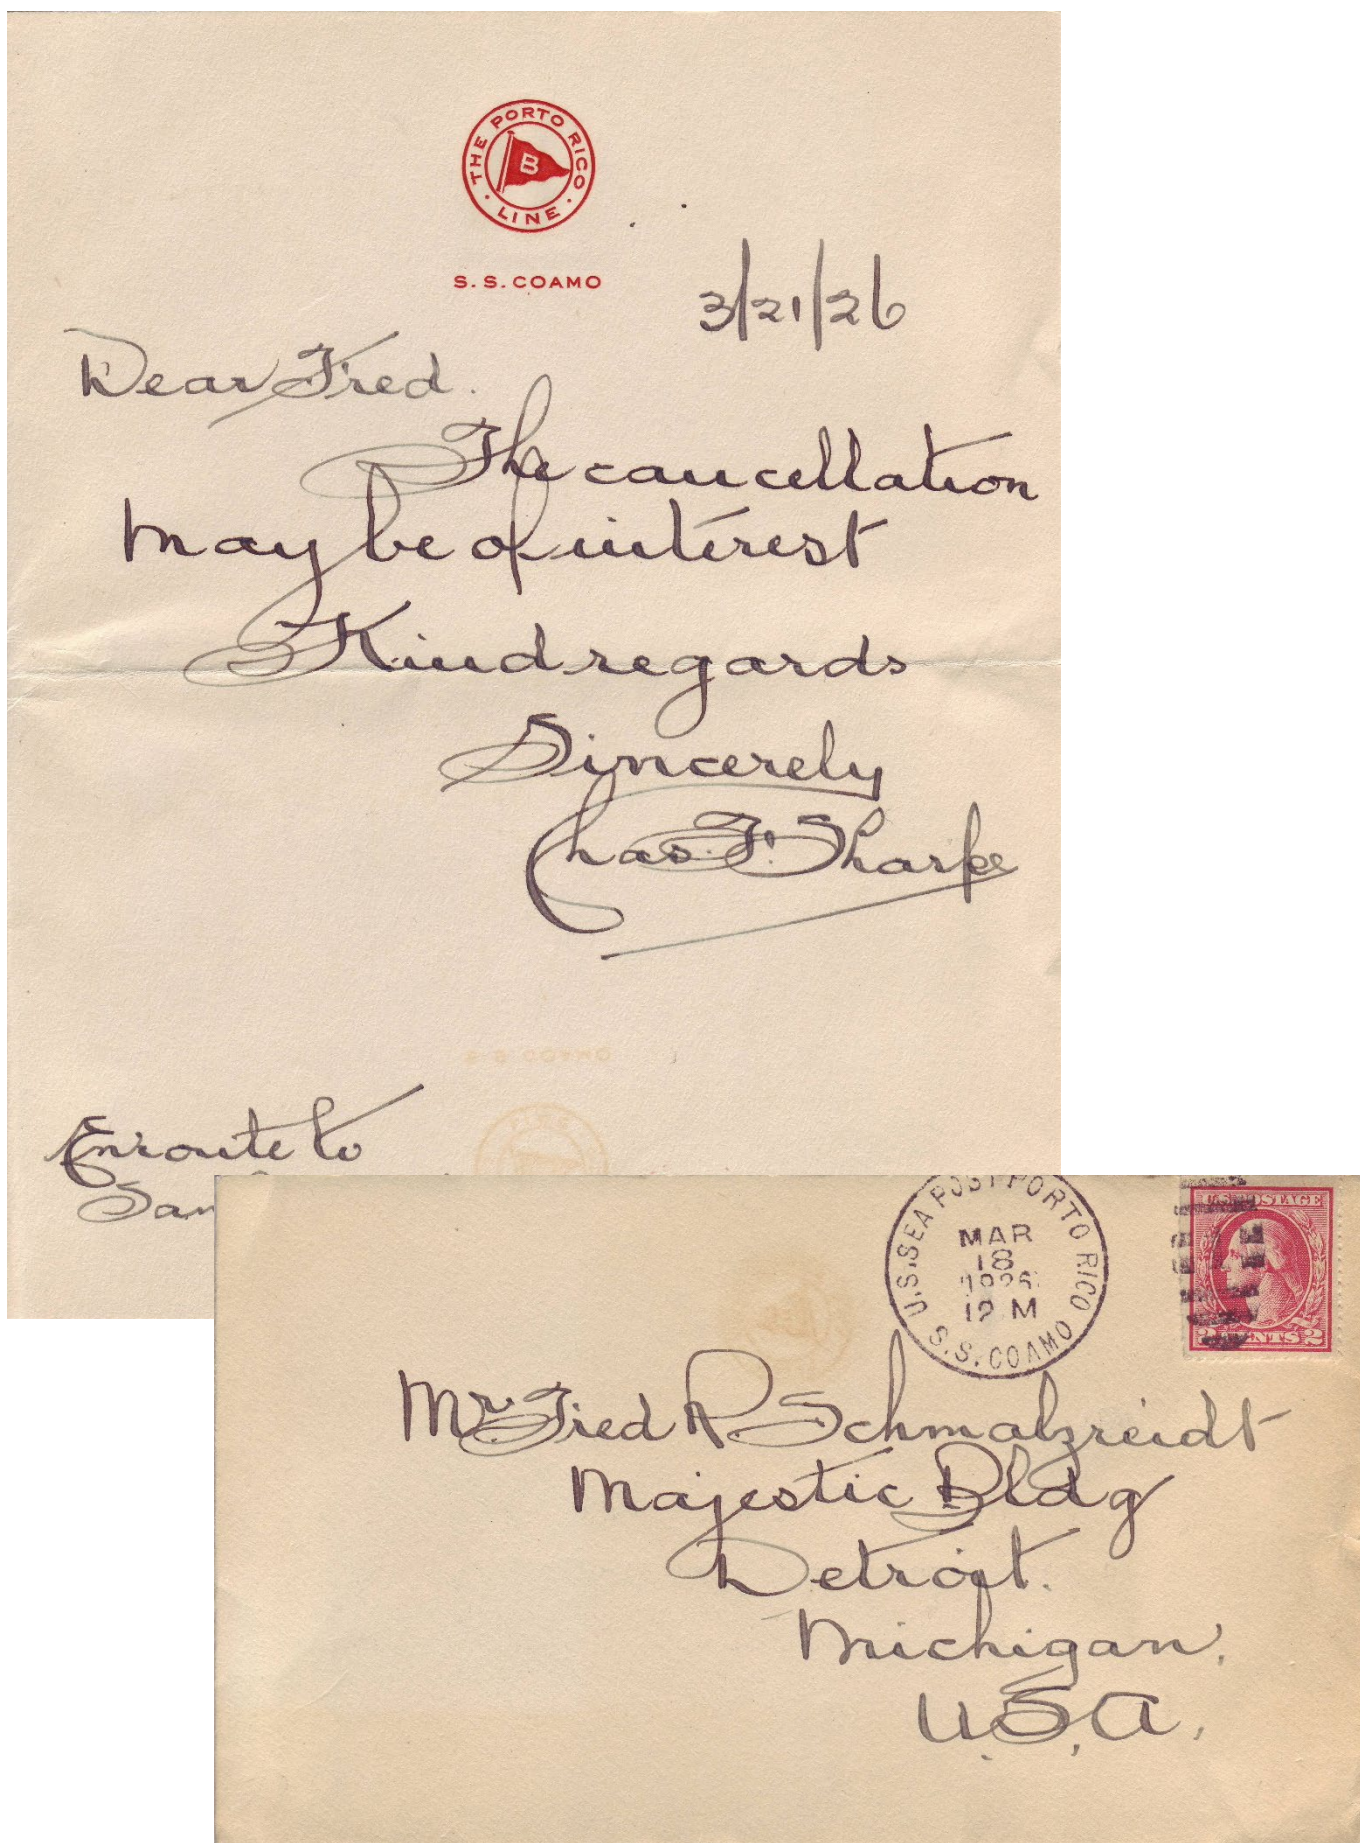 THE PORTO RICO LINE
B
S. S. COAMO
3/21/26
Dear Fred.
The cancellation
may be of interest
Kind regards
Sincerely
Chas. F. Sharpe
S. S. COAMO
Enroute to
San
U.S. SEA POST PORTO RICO
MAR
18
1926
12 M
S.S. COAMO
U.S. POSTAGE
2 CENTS 2
Mr. Fred R. Schmalzriedt
Majestic Bldg
Detroit.
Michigan.
U.S.A.